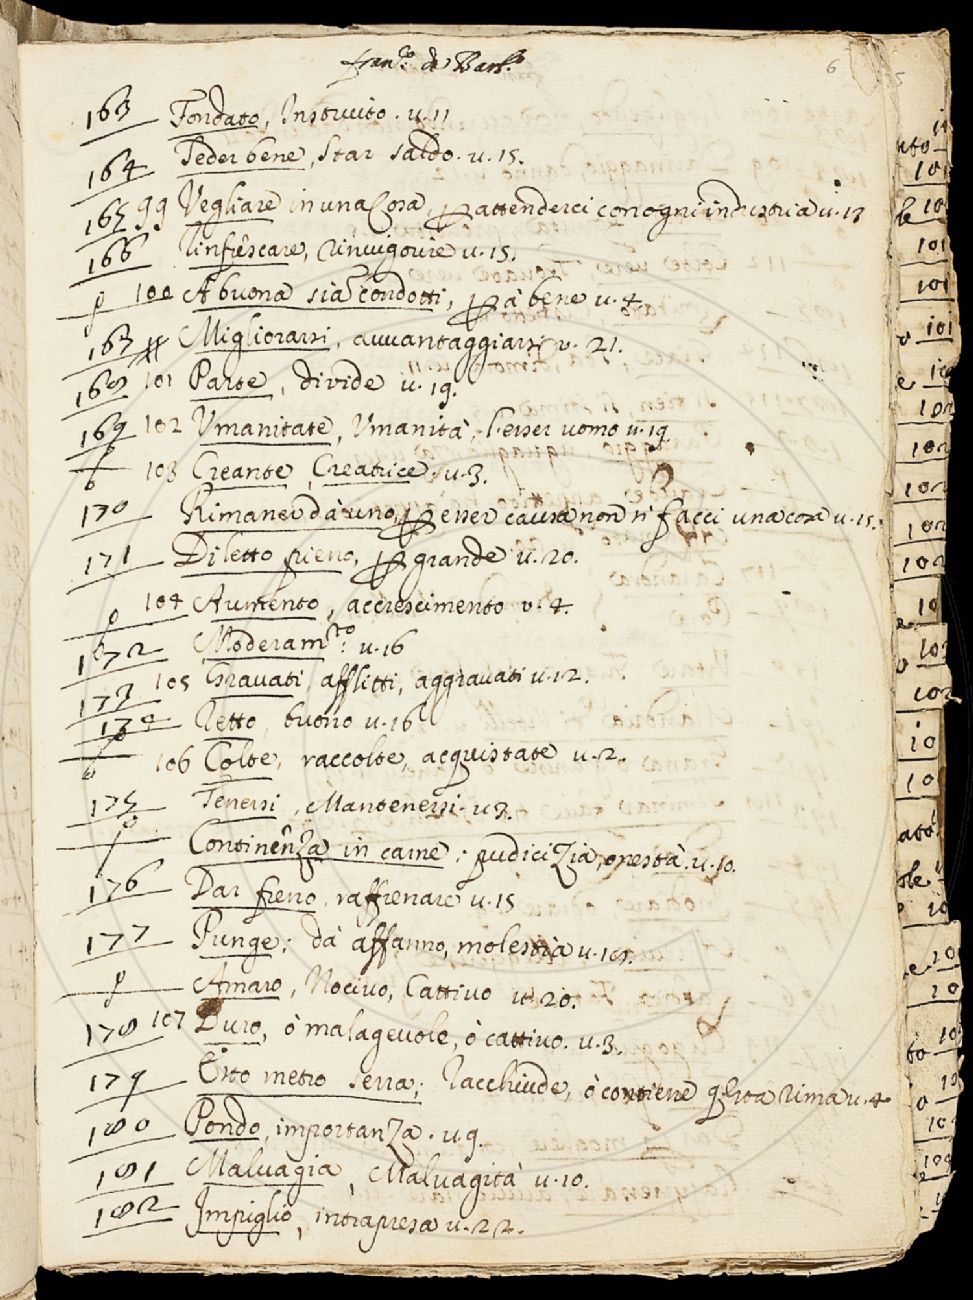 Fran.co da Barb.o
6
163 Fondato, Instruito. v. 11
164 Teder bene, Star saldo. v. 15.
165 99 Vegliare in una Cosa, p attenderci con ogni industria v. 13
166 Rinfrescare, Rinvigorire v. 15.
100 A buona sia condotti, p à bene v. 4.
163 Migliorarsi, avvantaggiarsi v. 21.
168 101 Parte, divide v. 19.
169 102 Vmanitate, Vmanità, l'esser uomo v. 19.
103 Creante, Creatrice. v. 3.
170 Rimaner da uno, p esser causa non si facci una cosa v. 15.
171 Diletto pieno, p grande v. 20.
104 Aumento, accrescimento v. 4.
172 Moderam.to: v. 16
173 105 Gravati, afflitti, aggravati v. 12.
174 Retto, buono v. 16
106 Colte, raccolte, acquistate v. 2.
175 Tenersi, Mantenersi. v. 3.
Continenza in carne; pudicizia, onestà. v. 10.
176 Dar freno, raffrenare v. 15
177 Punge; dà affanno, molestia v.
Amaro, Nocivo, Cattivo v. 20.
178 107 Duro, ò malagevole, ò cattivo. v. 3.
179 Esto metro serra; Racchiude, ò contiene qsta rima v. 4
180 Pondo, importanza. v. 9.
181 Malvagia, Malvagità v. 10.
182 Impiglio, intrapresa v. 22.